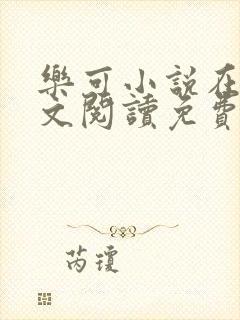 樂可小說在
文閱讀免費
芮瓊